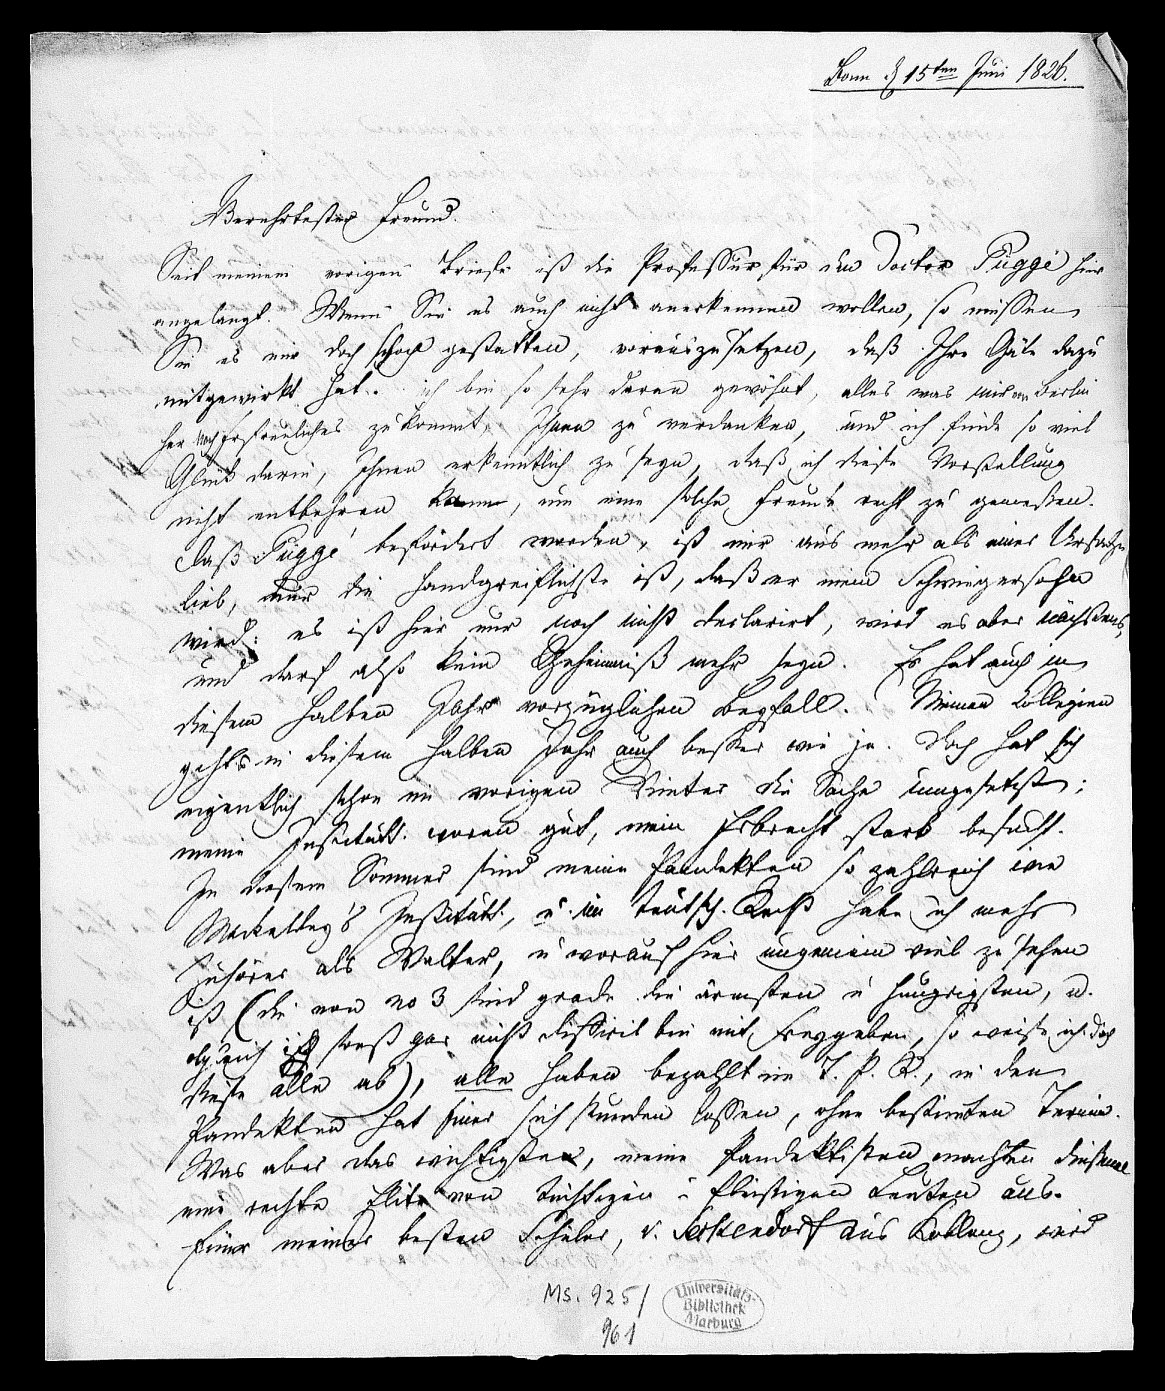 Bonn d 15ten Juni 1826.
Verehrtester Freund.
Seit meinem vorigen Briefe ist die Professur für den Doctor Puggé hier
angelangt. Wenn Sie es auch nicht anerkennen wollen, so müssen
Sie es mir doch schon gestatten, vorauszusetzen, daß Ihre Güte dazu
mitgewirkt hat. ich bin so sehr daran gewöhnt, alles was mir von Berlin
her noch erfreuliches zukommt, Ihnen zu verdanken, und ich finde so viel
Glück darin, Ihnen erkenntlich zu seyn, daß ich diese Vorstellung
nicht entbehren kann, um eine solche Freude recht zu geniessen.
Daß Puggé befördert worden, ist mir aus mehr als einer Ursache
lieb, die handgreiflichste ist, daß er mein Schwiegersohn
wird: es ist hier nur noch nicht declarirt, wird es aber nächstens,
und darf also kein Geheimniß mehr seyn. Er hat auch in
diesem halben Jahr vorzüglichen Beyfall. Meinen Collegien
gehts in diesem halben Jahr auch besser wie je. Doch hat sich
eigentlich schon im vorigen Winter die Sache umgesetzt;
meine Institutt. waren gut, mein Erbrecht stark besucht.
In diesem Sommer sind meine Pandekten so zahlreich wie
Mackeldey's Institutt., u. im teutsch. Recht habe ich mehr
Zuhörer als Walter, u worauf hier ungemein viel zu sehen
ist (die von no 3 sind grade die ärmsten u hungrigsten, u.
obgleich ich sonst gar nicht difficil bin mit Freygeben, so weise ich doch
diese alle ab), alle haben bezahlt im T. P. R., in den
Pandekten hat einer sich stunden lassen, ohne bestimten Termin.
Was aber das wichtigste, meine Pandektisten machten diesmal
eine rechte Elite von tüchtigen u fleissigen Leuten aus.
Einer meiner besten Schüler, v. Seckendorf aus Koblenz, wird
Ms. 925/
961
Universitäts-
Bibliothek
Marburg